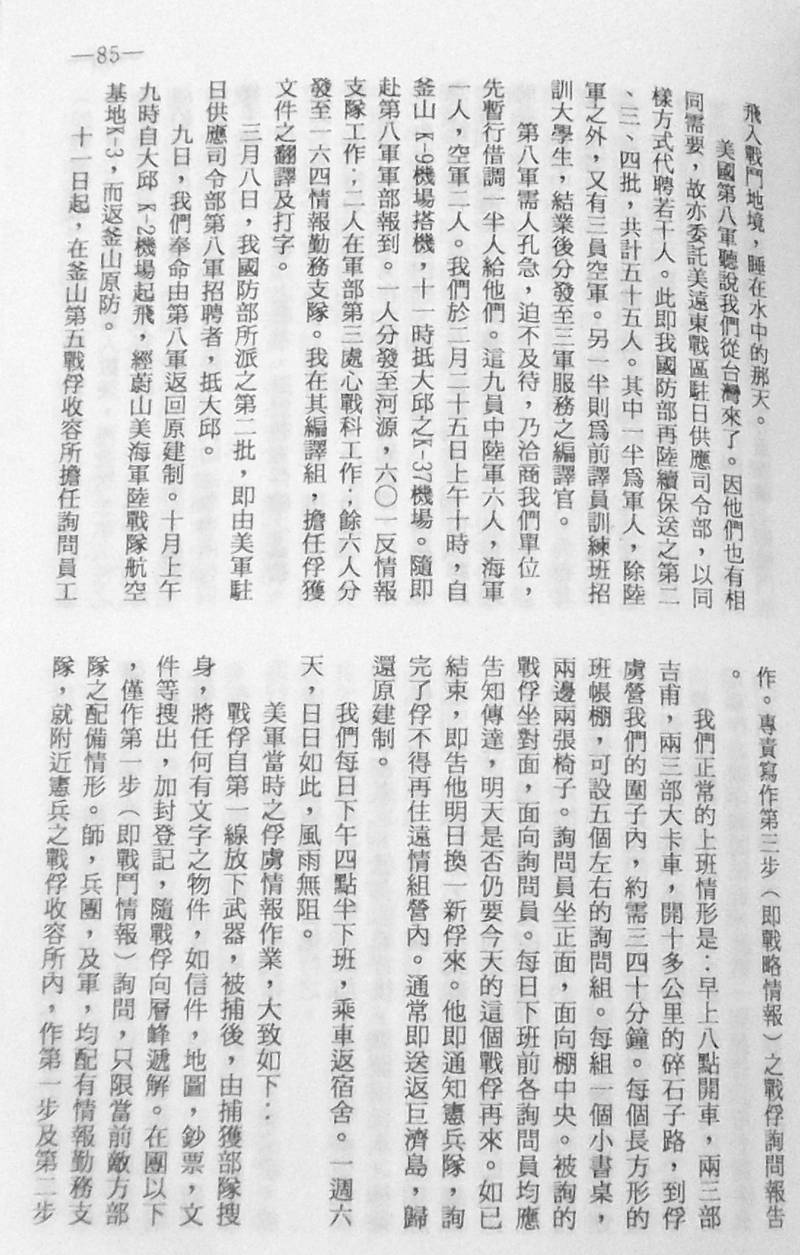 —85—
飛入戰鬥地境，睡在水中的那天。
美國第八軍聽說我們從台灣來了。因他們也有相
同需要，故亦委託美遠東戰區駐日供應司令部，以同
樣方式代聘若干人。此即我國防部再陸續保送之第二
、三、四批，共計五十五人。其中一半爲軍人，除陸
軍之外，又有三員空軍。另一半則爲前譯員訓練班招
訓大學生，結業後分發至三軍服務之編譯官。
第八軍需人孔急，迫不及待，乃洽商我們單位，
先暫行借調一半人給他們。這九員中陸軍六人，海軍
一人，空軍二人。我們於二月二十五日上午十時，自
釜山 K-9機場搭機，十一時抵大邱之K-37機場。隨即
赴第八軍軍部報到。一人分發至河源，六〇一反情報
支隊工作；二人在軍部第三處心戰科工作；餘六人分
發至一六四情報勤務支隊。我在其編譯組，擔任俘獲
文件之翻譯及打字。
三月八日，我國防部所派之第二批，即由美軍駐
日供應司令部第八軍招聘者，抵大邱。
九日，我們奉命由第八軍返回原建制。十月上午
九時自大邱 K-2機場起飛，經蔚山美海軍陸戰隊航空
基地K-3，而返釜山原防。
十一日起，在釜山第五戰俘收容所擔任詢問員工
作。專責寫作第三步（即戰略情報）之戰俘詢問報告
。
我們正常的上班情形是：早上八點開車，兩三部
吉甫，兩三部大卡車，開十多公里的碎石子路，到俘
虜營我們的圍子內，約需三四十分鐘。每個長方形的
班帳棚，可設五個左右的詢問組。每組一個小書桌，
兩邊兩張椅子。詢問員坐正面，面向棚中央。被詢的
戰俘坐對面，面向詢問員。每日下班前各詢問員均應
告知傳達，明天是否仍要今天的這個戰俘再來。如已
結束，即告他明日換一新俘來。他即通知憲兵隊，詢
完了俘不得再住遠情組營內。通常即送返巨濟島，歸
還原建制。
我們每日下午四點半下班，乘車返宿舍。一週六
天，日日如此，風雨無阻。
美軍當時之俘虜情報作業，大致如下：
戰俘自第一線放下武器，被捕後，由捕獲部隊搜
身，將任何有文字之物件，如信件，地圖，鈔票，文
件等搜出，加封登記，隨戰俘向層峰遞解。在團以下
，僅作第一步（即戰鬥情報）詢問，只限當前敵方部
隊之配備情形。師，兵團，及軍，均配有情報勤務支
隊，就附近憲兵之戰俘收容所內，作第一步及第二步